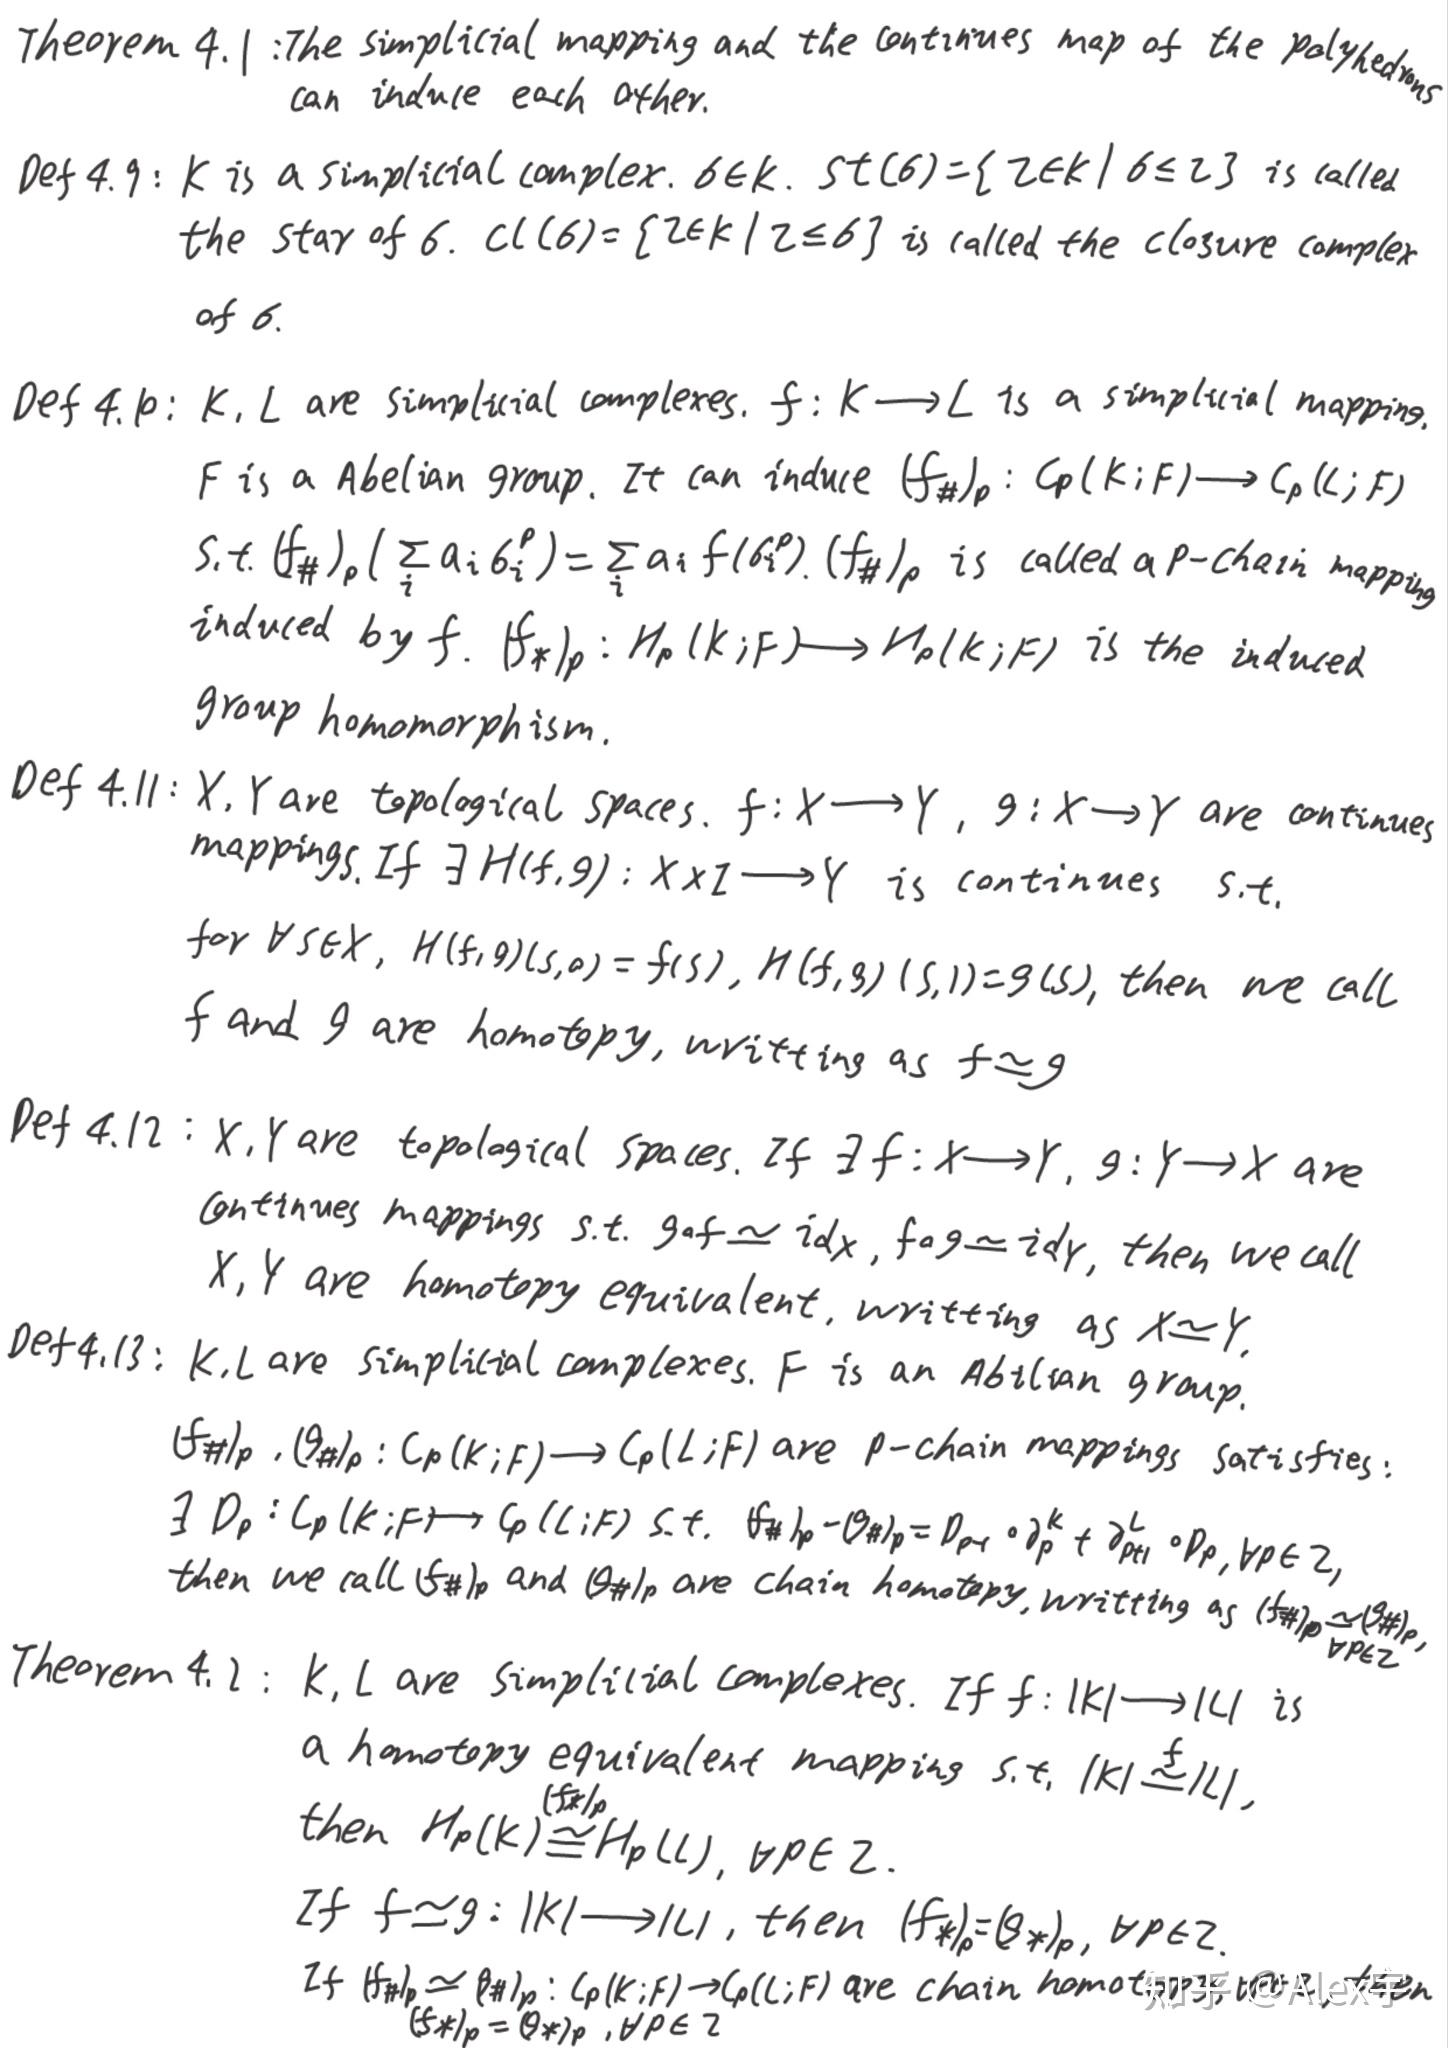 Theorem 4.1 : The simplicial mapping and the continues map of the polyhedrons
can induce each other.
Def 4.9 : K is a simplicial complex. σ∈K. St(σ)={τ∈K | σ≤τ} is called
the star of σ. Cl(σ)={τ∈K | τ≤σ} is called the closure complex
of σ.
Def 4.10 : K, L are simplicial complexes. f : K⟶L is a simplicial mapping.
F is a Abelian group. It can induce (f_#)_p : C_p(K;F)⟶C_p(L;F)
s.t. (f_#)_p(∑_i a_i σ_i^p)=∑_i a_i f(σ_i^p). (f_#)_p is called a p-chain mapping
induced by f. (f_*)_p : H_p(K;F)⟶H_p(K;F) is the induced
group homomorphism.
Def 4.11 : X, Y are topological spaces. f : X⟶Y, g : X⟶Y are continues
mappings. If ∃ H(f,g) : X×I⟶Y is continues s.t.
for ∀s∈X, H(f,g)(s,0)=f(s), H(f,g)(s,1)=g(s), then we call
f and g are homotopy, writting as f≃g
Def 4.12 : X, Y are topological spaces. If ∃ f : X⟶Y, g : Y⟶X are
continues mappings s.t. g∘f≃id_X, f∘g≃id_Y, then we call
X, Y are homotopy equivalent, writting as X≃Y.
Def 4.13 : K, L are simplicial complexes. F is an Abelian group.
(f_#)_p, (g_#)_p : C_p(K;F)⟶C_p(L;F) are p-chain mappings satisfies :
∃ D_p : C_p(K;F)⟶C_p(L;F) s.t. (f_#)_p-(g_#)_p=D_{p-1}∘∂_p^K+∂_{p+1}^L∘D_p, ∀p∈Z,
then we call (f_#)_p and (g_#)_p are chain homotopy, writting as (f_#)_p≃(g_#)_p,
∀p∈Z
Theorem 4.2 : K, L are simplicial complexes. If f : |K|⟶|L| is
a homotopy equivalent mapping s.t. |K| ≃^f |L|,
then H_p(K) ≅^{(f_*)_p} H_p(L), ∀p∈Z.
If f≃g : |K|⟶|L|, then (f_*)_p=(g_*)_p, ∀p∈Z.
If (f_#)_p≃(g_#)_p : C_p(K;F)→C_p(L;F) are chain homotopy, ∀p∈Z, then
(f_*)_p=(g_*)_p, ∀p∈Z
知乎 @Alex宇